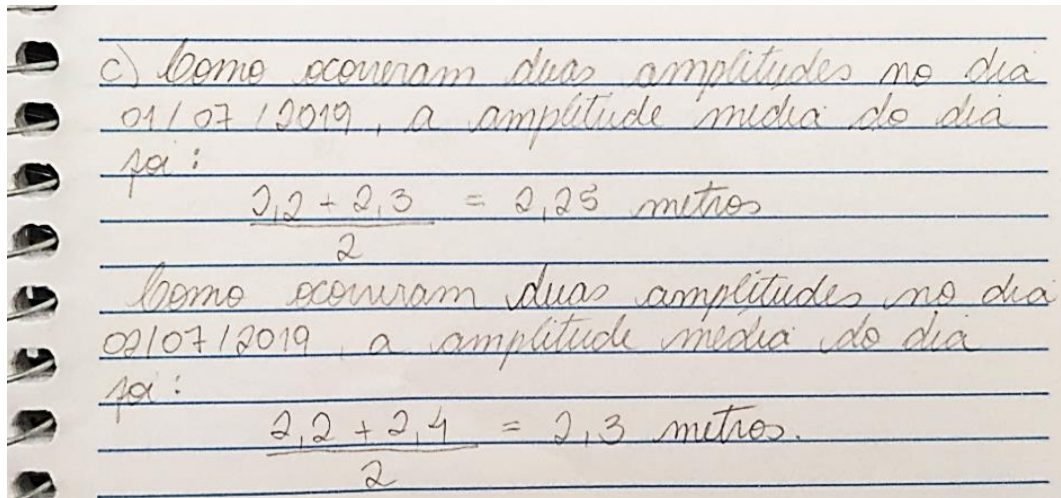 c) Como ocorreram duas amplitudes no dia
01/07/2019, a amplitude média do dia
foi:
2,2 + 2,3 = 2,25 metros
2
Como ocorreram duas amplitudes no dia
02/07/2019, a amplitude média do dia
foi:
2,2 + 2,4 = 2,3 metros.
2